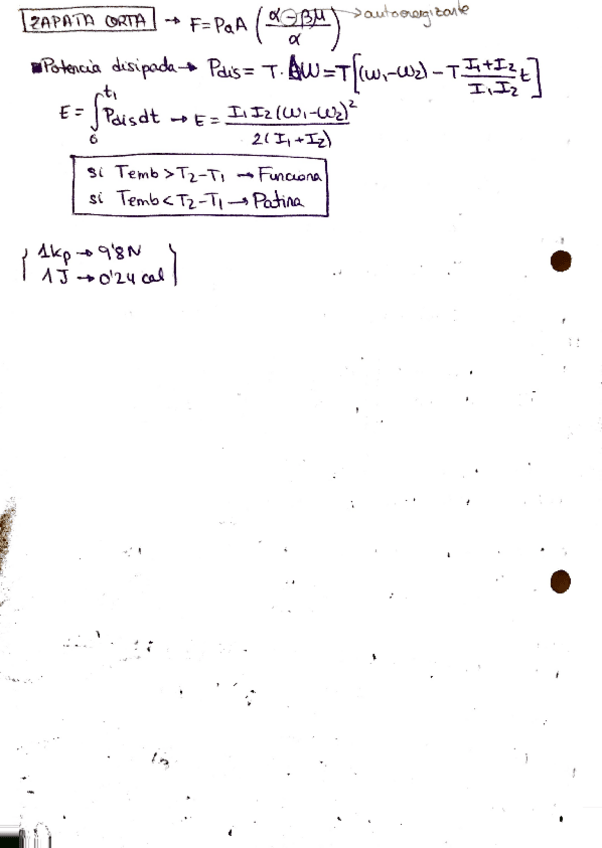 ZAPATA CORTA → F = PaA (α-βμ / α) → autoenergizante
Potencia disipada → Pdis = T·ΔW = T[(ω₁-ω₂) - T I₁+I₂ / I₁I₂ t]
E = ∫₀^t₁ Pdis dt → E = I₁I₂(ω₁-ω₂)² / 2(I₁+I₂)
Si Temb > T₂-T₁ → Funciona
Si Temb < T₂-T₁ → Patina
1kp → 9'8N
1J → 0'24 cal